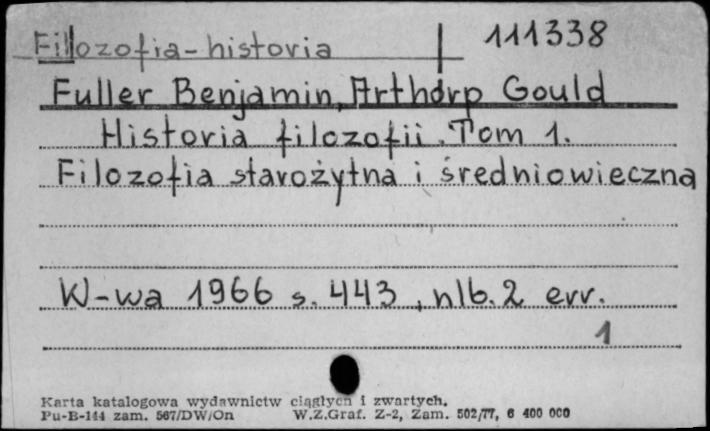 Filozofia-historia 111338
Fuller Benjamin, Arthorp Gould
Historia filozofii. Tom 1.
Filozofia starożytna i średniowieczna
W-wa 1966 s. 443, nlb. 2 err.
1
Karta katalogowa wydawnictw ciągłych i zwartych.
Pu-B-144 zam. 567/DW/On W.Z.Graf. Z-2, Zam. 502/77, 6 400 000